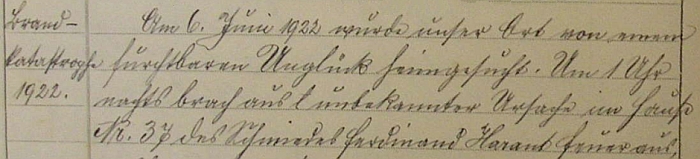 Brand-
katastrophe
1922.
Am 6. Juni 1922 wurde unser Ort von einem
furchtbaren Unglück heimgesucht. Um 1 Uhr
nachts brach aus unbekannter Ursache im Hause
Nr. 37 des Schmiedes Ferdinand Harant Feuer aus.